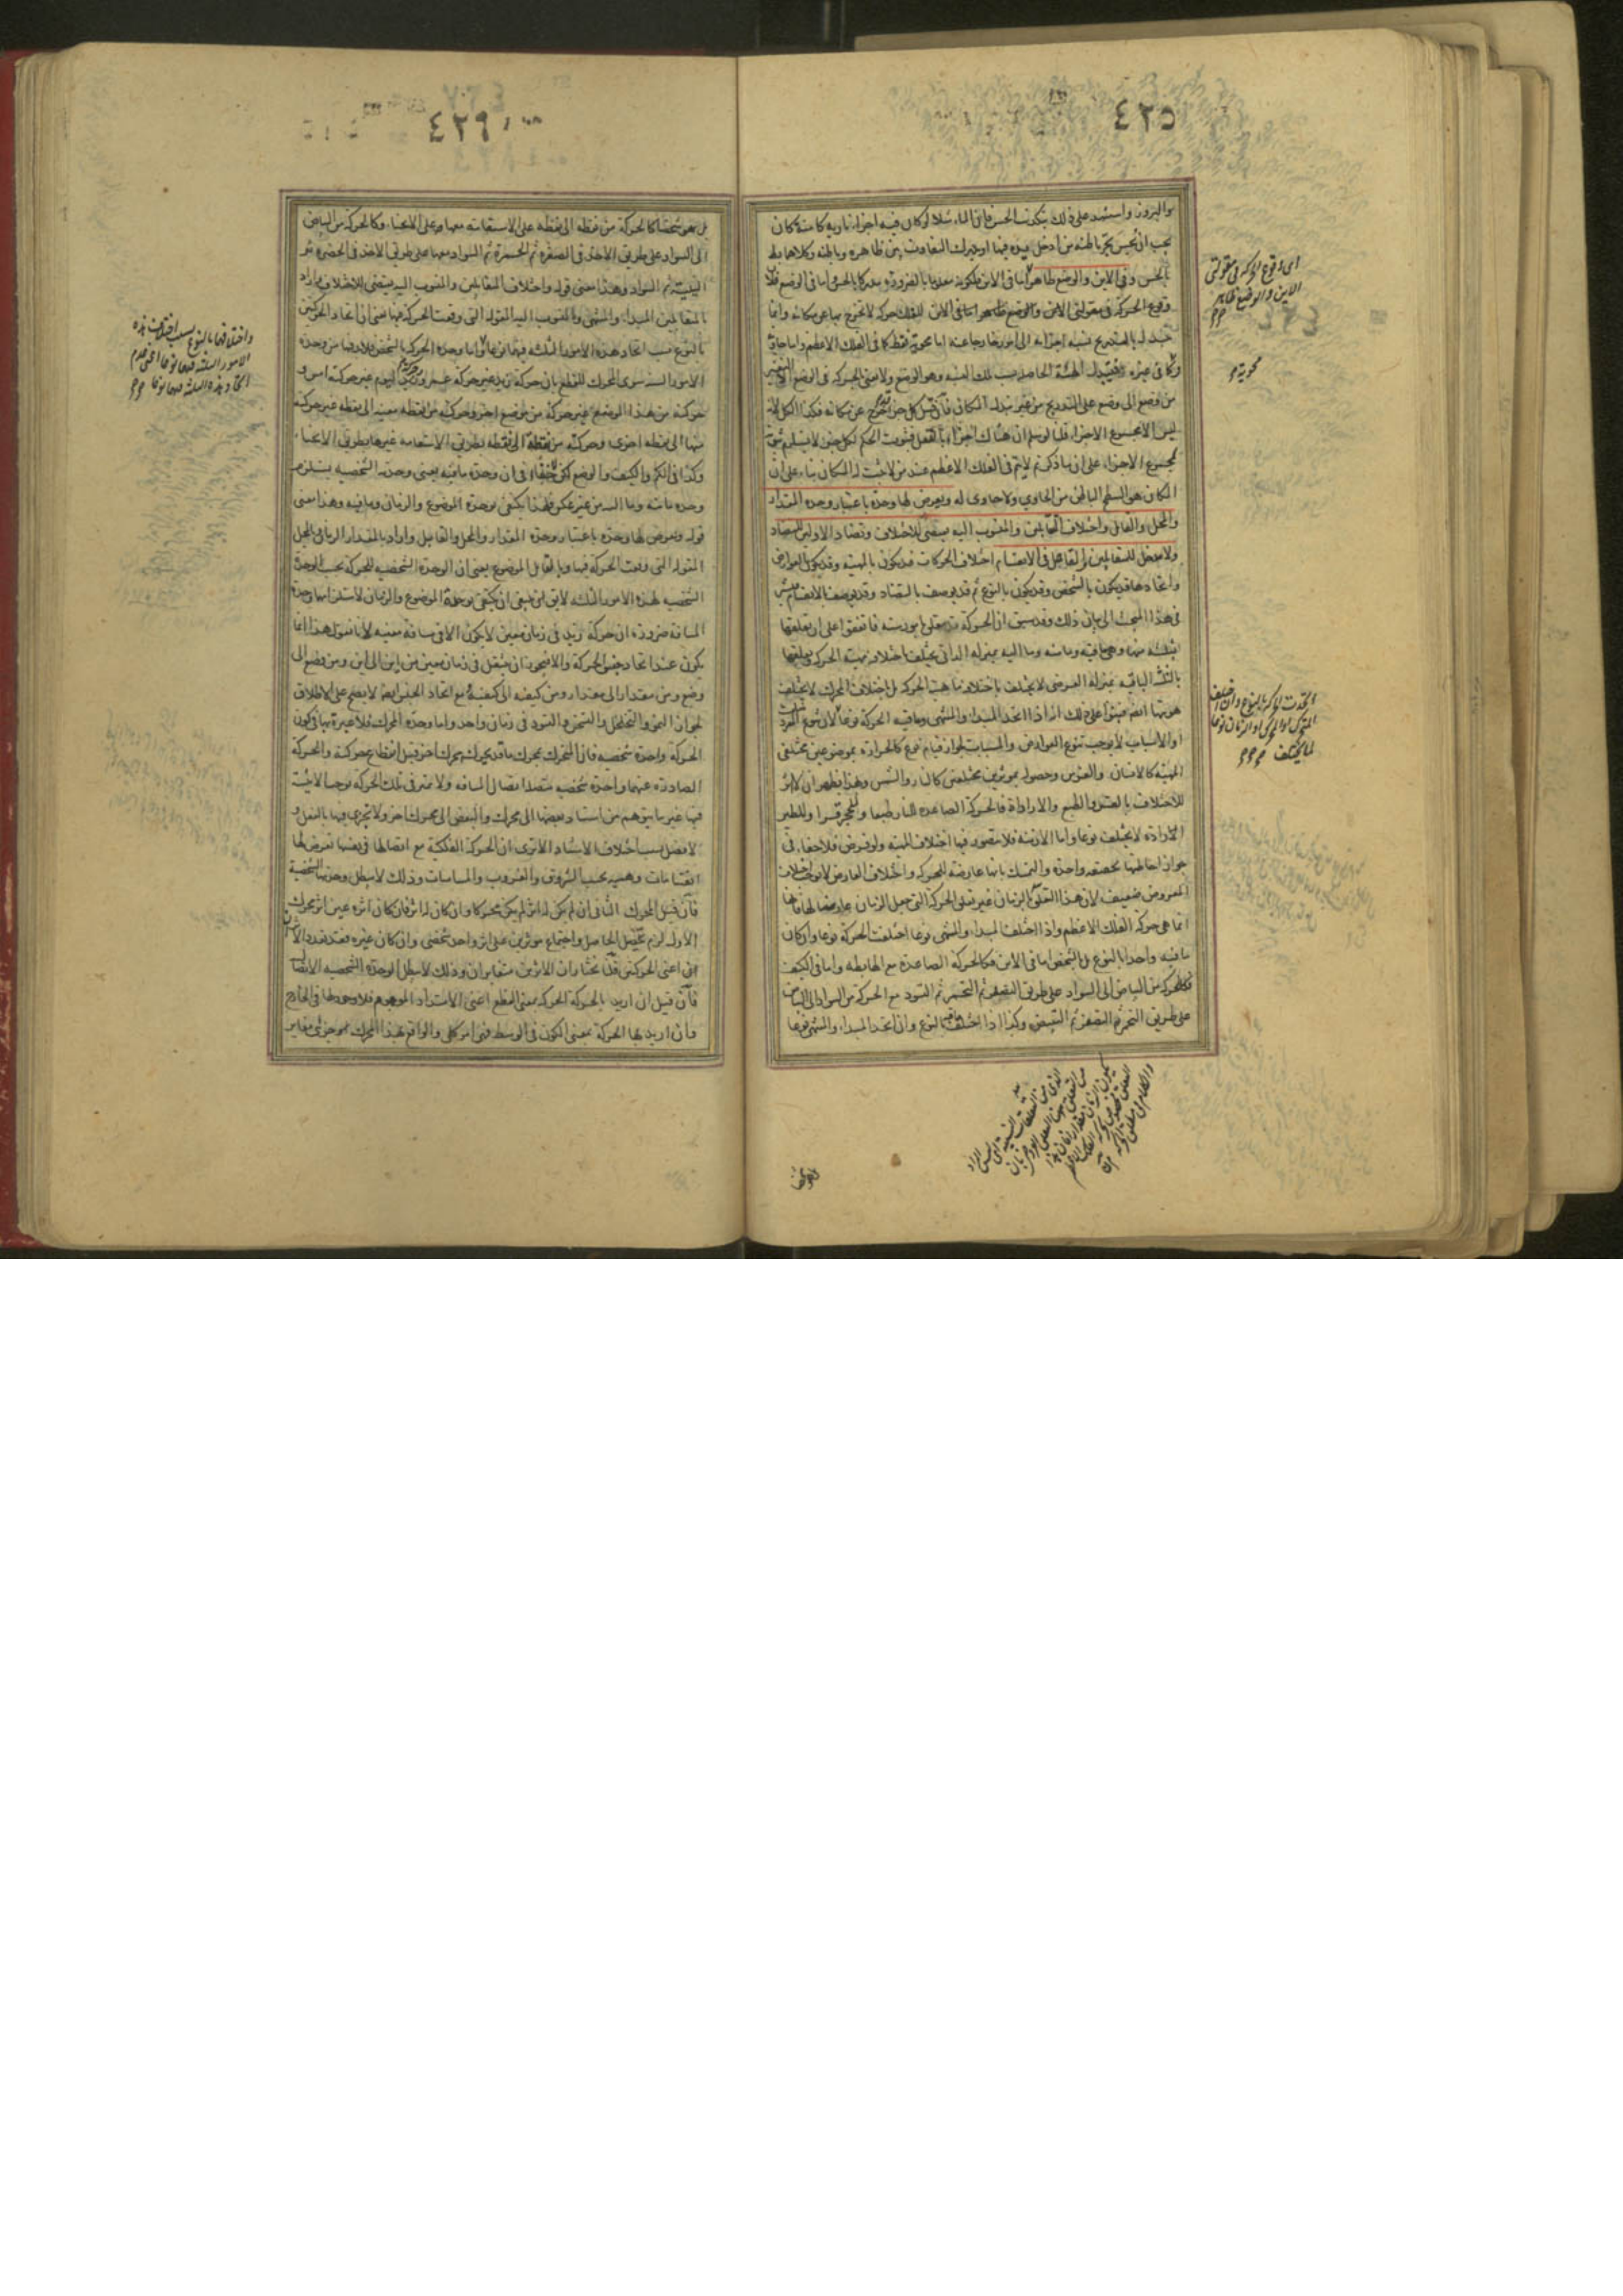 ٤٢٥
والبرودة واستشهد على ذلك بتكذيب الحس فان الماء مثلا لو كان فيه اجزاء نارية كامنة كان
يجب ان يحس بحر باطنه من ادخل يده فيها او يدرك التفاوت بين ظاهره وباطنه وكلاهما بط
بالحس وفي الاين والوضع ظاهر اما في الاين فلكونه معلوما بالضرورة مدركا بالحس واما في الوضع فلان
وقوع الحركة في مقولتي الاين والوضع ظاهر اما في الاين للفلك حركة لا تخرج بها عن مكانه وانما
يتبدل بالتدريج نسبة اجزائه الى امور خارجة عنه اما محوية فقط كما في الفلك الاعظم واما حاوية
كما في غيره فيتبدل الهيئة الحاصلة بسبب تلك النسبة وهو الوضع ولا معنى للحركة في الوضع الا التغير
من وضع الى وضع على التدريج من غير تبدل المكان فان قيل كل جزء يخرج عن مكانه فكذا الكل لانه
ليس الا مجموع الاجزاء قلنا لو سلم ان هناك اجزاء بالفعل فثبوت الحكم لكل جزء لا يستلزم ثبوته
لمجموع الاجزاء على ان ما ذكرتم لا يتم في الفلك الاعظم عند من لا يثبت له المكان بناء على ان
المكان هو السطح الباطن من الحاوي ولا حاوى له ويعرض لها وحدة باعتبار وحدة المقدار
والمحل والقابل واختلاف المتقابلين والمنسوب اليه مقتض للاختلاف وتضاد الاولين للتضاد
ولا مدخل للمتقابلين والفاعل في الانقسام اختلاف الحركات قد يكون بالمهية وقد يكون بالعوارض
واتحادها قد يكون بالشخص وقد يكون بالنوع ثم قد يوصف بالتضاد وقد يوصف بالانقسام فيشير
في هذا المبحث الى بيان ذلك وقد سبق ان الحركة تتعلق بامور ستة فاتفقوا على ان تعلقها
بثلثة منها وهي ما فيه وما منه وما اليه بمنزلة الذاتي يختلف باختلافه مهية الحركة وتعلقها
بالثلثة الباقية بمنزلة العرضي لا يختلف باختلافه ماهية الحركة بل باختلاف المحرك لا يختلف
هويتها ايضا فبنوا على ذلك انه اذا اتحد المبدا والمنتهى وما فيه الحركة نوعا لان تنوع المعروضات
او الاسباب لا يوجب تنوع العوارض والمسببات لجواز قيام نوع كالحرارة بموضوعين مختلفي
المهية كالانسان والفرس وحصوله بموثرين مختلفين كالنار والشمس وبهذا يظهر ان لا اثر
للاختلاف بالقسر والطبع والارادة فالحركة الصاعدة للنار طبعا وللحجر قسرا وللطير
ارادة لا يختلف نوعا واما الازمنة فلا يتصور فيها اختلاف المهية ولو فرض فلا خفاء في
جواز احاطتها بحقيقة واحدة والتمسك بانها عارضة للحركة واختلاف العارض لا يوجب اختلاف
المعروض ضعيف لان هذا التعلق للزمان غير تعلق الحركة التي جعل الزمان عارضا لها فانها
انما هي حركة الفلك الاعظم واذا اختلف المبدا والمنتهى نوعا اختلف الحركة نوعا وان كان
ما فيه واحدا بالنوع بل بالشخص اما في الاين فكالحركة الصاعدة مع الهابطة واما في الكيف
فكالحركة من البياض الى السواد على طريق التصفر ثم التحمر ثم التسود مع الحركة من السواد الى البياض
على طريق التحمر ثم التصفر ثم التبيض وكذا اذا اختلف ما فيه بالنوع وان اتحد المبدا والمنتهى نوعا
اى وقوع الحركة في مقولتي
الاين والوضع ظاهر
محوية م
اتحدت الحركة بالنوع وان اختلف
المتحرك او المحرك او الزمان نوعا
٤٢٩
بل هو شخصا كالحركة من نقطة الى نقطة على الاستقامة معها وعلى الانحناء وكالحركة من البياض
الى السواد على طريق الاخذ في الصفرة ثم الحمرة ثم السواد معها على طريق الاخذ في الخضرة ثم
النيلية ثم السواد وهذا معنى قوله واختلاف المتقابلين والمنسوب اليه مقتض للاختلاف واراد
بالمتقابلين المبدا والمنتهى وبالمنسوب اليه المقولة التي وقعت الحركة فيها يعني ان اتحاد الحركتين
بالنوع بسبب اتحاد هذه الامور الثلثة فيهما نوعا واما وحدة الحركة بالشخص فلا بد فيها من وحدة
الامور الستة سوى المحرك للقطع بان حركة زيد غير حركة عمرو وحركة زيد اليوم غير حركته امس و
حركته من هذا الموضع غير حركته من موضع اخر وحركته من نقطة معينة الى نقطة غير حركته
منها الى نقطة اخرى وحركته من نقطة الى نقطة بطريق الاستقامة غيرها بطريق الانحناء
وكذا في الكم والكيف والوضع لكن لا خفاء في ان وحدة ما فيه يعنى وحدته الشخصية يستلزم
وحدة ما منه وما اليه من غير عكس فلهذا يكتفى بوحدة الموضوع والزمان وما فيه وهذا معنى
قوله ويعرض لها وحدة باعتبار وحدة المقدار والمحل والقابل واراد بالمقدار الزمان وبالمحل
المقولة التي وقعت الحركة فيها وبالقابل الموضوع يعنى ان الوحدة الشخصية للحركة بحسب الوحدة
الشخصية لهذه الامور الثلثة لا يق لم ينبغى ان يكتفى بوحدة الموضوع والزمان لاستلزامهما وحدة
المسافة ضرورة ان حركة زيد في زمان معين لا يكون الا في مسافة معينة لانا نقول هذا انما
يكون عند اتحاد جنس الحركة والا فيجوز ان ينتقل في زمان معين من اين الى اين ومن وضع الى
وضع ومن مقدار الى مقدار ومن كيفية الى كيفية بل مع اتحاد الجنس ايضا لا يصح على الاطلاق
لجواز النمو والتخلخل والتسخن والتسود في زمان واحد واما وحدة المحرك فلا عبرة بها في كون
الحركة واحدة شخصية فان المتحرك بمحرك ما قد يحركه محرك اخر قبل انقطاع حركته والحركة
الصادرة عنهما واحدة شخصية متصلة اتصال المسافة ولا تميز في تلك الحركة يوجب الاثنينية
فيها غير ما يتوهم من استناد بعضها الى محرك والبعض الى محرك اخر ولا تجزى فيها بالفعل و
لا فصل بسبب اختلاف الاستناد الا ترى ان الحركة الفلكية مع اتصالها في نفسها تعرض لها
انقسامات وهمية بحسب الشروق والغروب والمسامتات وذلك لا يبطل وحدتها الشخصية
فان قيل المحرك الثاني ان لم يكن له اثر لم يكن محركا وان كان له اثر فان كان اثره عين اثر المحرك
الاول لزم تحصيل الحاصل واجتماع موثرين على اثر واحد شخصي وان كان غيره فقد تعدد الاثر
اعنى الحركتين قلنا نختار ان الاثرين متغايران وذلك لا يبطل الوحدة الشخصية الاتصالية
فان قيل ان اريد بالحركة الحركة بمعنى القطع اعنى الامتداد الموهوم فلا وجود لها في الخارج
وان اريد بها الحركة بمعنى الكون في الوسط فهي امر كلي والواقع بهذا المحرك موجود جزئي مغاير